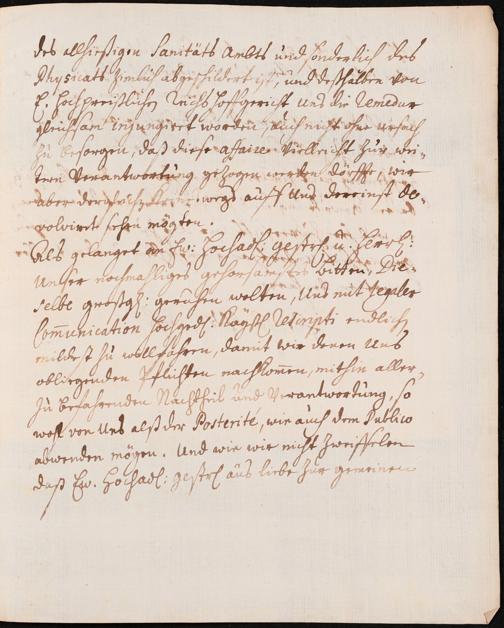 des allhiesigen Sanitäts Ambts und sonderlich des
Physicats zimlich abgeschildert ist, und deßhalben von
E. Hochpreißlichen Reichs Hoffgericht uns die Remedur
gleichsam injungiret worden, auch nicht ohne ursach
zu besorgen, daß diese affaire vielleicht zur wei-
tern Verantwortung gezogen werden dörffte, wir
aber dergleichen keineswegs auff uns dereinst de-
volviret sehen mögten.
Als gelanget an Ew. Hochadl: gestrl: u: Herrl:
unser nochmahliges gehorsamstes bitten, Die-
selbe großgl: geruhen wolten, uns mit
Communication Hochged: Kaysl: Rescripti endlich
mildest zu willfahren, damit wir denen uns
obliegenden Pflichten nachkommen, mithin aller-
zu befahrenden Nachtheil und Verantwortung, so
wohl von uns alß der Posterité, wie auch dem Publico
abwenden mögen. Und wie wir nicht zweiffelen
daß Ew. Hochadl: gestrl aus liebe zur gemeinen